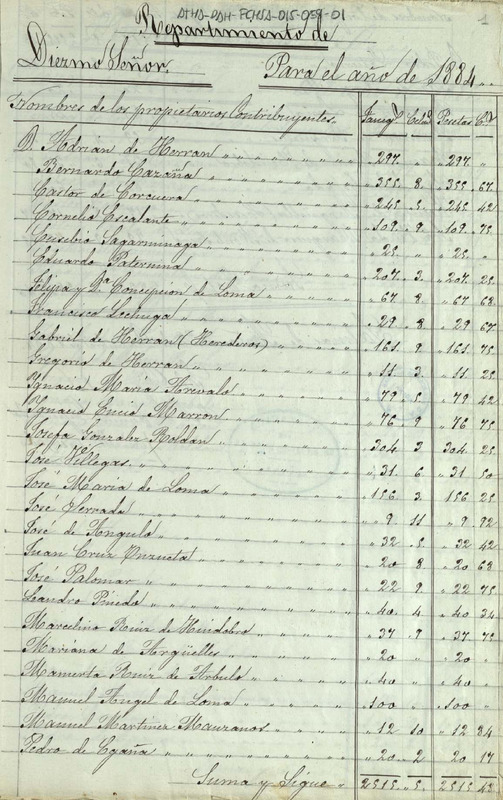 ATHA-DAH-FCHSA-015-059-01
1
Repartimiento de
Diezmo Señor. Para el año de 1884
Nombres de los propietarios Contribuyentes. Faneg.s Celms Pesetas C.s
D. Adrián de Herran " 297. " " 297. "
Bernardo Cazaña " 355. 8. " 355. 67
Castor de Corcuera " 245. 5. " 245. 42
Cornelio Escalante " 109. 9. " 109. 75
Eusebio Sagarminaga " 25. " " 25. "
Eduardo Paternina " 207. 3. " 207. 25
Felipa y D.a Concepcion de Loma " 67. 8. " 67 68
Francisco Lechuga " 29 8. " 29 67
Gabriel de Herran (Herederos) " 165. 9. " 165. 75
Gregorio de Herran " 11 3. " 11 25
Ignacio María Arevalo " 79. 5. " 79 42
Ignacio Encio Marron " 76. 9 " 76 75
Josefa Gonzalez Roldan " 304 3. " 304 25
José Villegas " 31. 6 " 31 50
José María de Loma " 156 3. " 156 25
José Serrada " 9 11 " 9 92
José de Angulo " 32 5. " 32 42
Juan Cruz Unzueta " 20 8 " 20 68
José Palomar " 22 9 " 22 75
Leandro Pinedo " 40 4 " 40 34
Marcelino Ruiz de Huidobro " 37 9 " 37 75
Mariana de Argüelles " 20 " " 20 "
Mamerta Ruiz de Arbulo " 40 " " 40 "
Manuel Angel de Loma " 500 " " 500 "
Manuel Martinez Manzanos " 12 10 " 12 84
Pedro de Egaña " 20 2 20 17
Suma y Sigue 2515 5. 2515 42